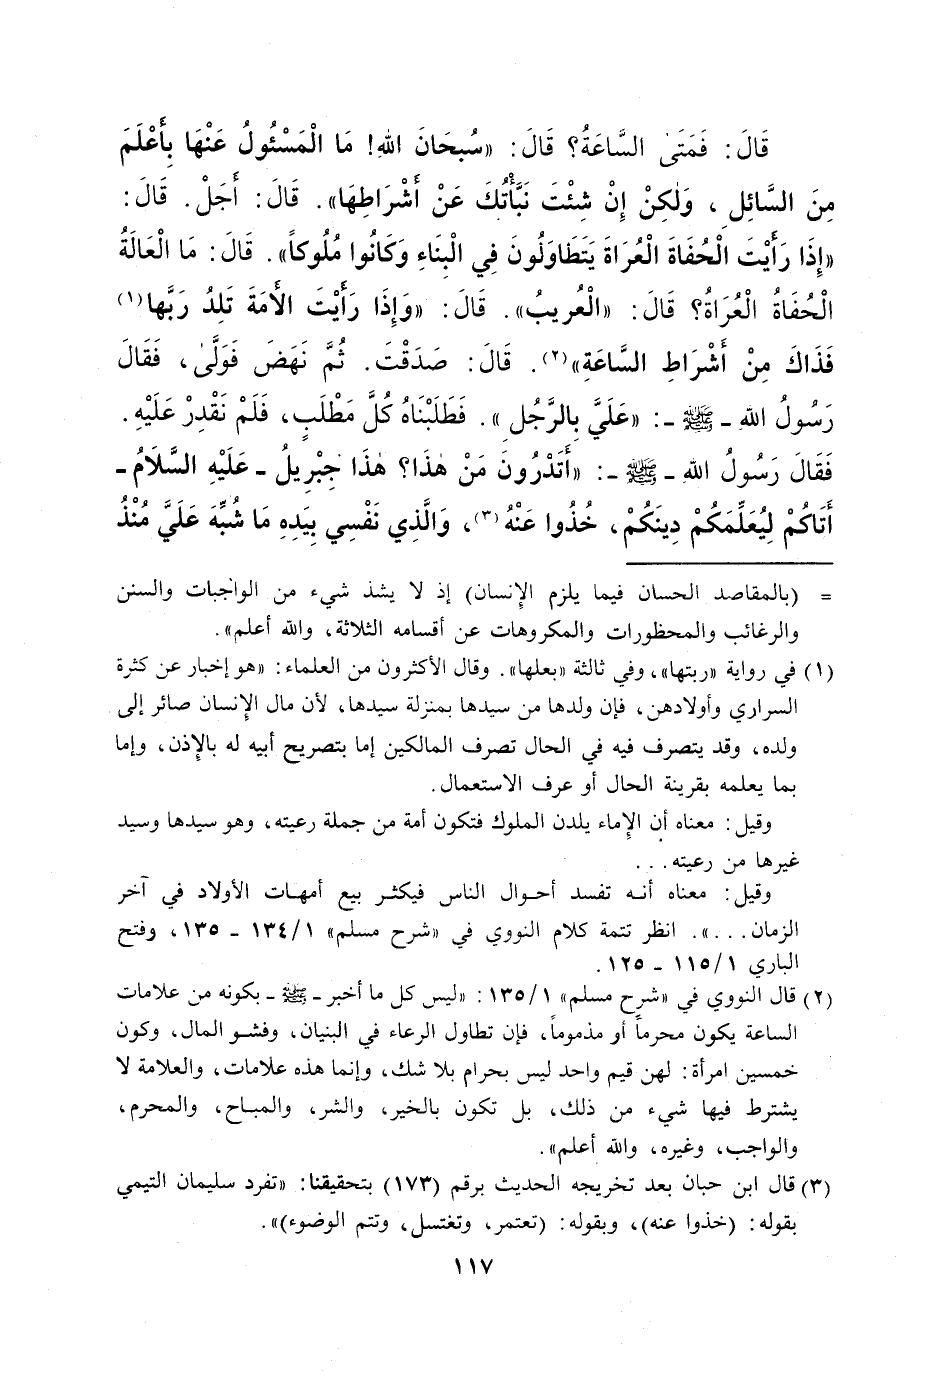 قَالَ: فَمَتَىٰ السَّاعَةُ؟ قَالَ: «سُبحَانَ اللهِ! مَا الْمَسْئُولُ عَنْهَا بِأَعْلَمَ
مِنَ السَّائِلِ، وَلٰكِنْ إِنْ شِئْتَ نَبَّأْتُكَ عَنْ أَشْرَاطِهَا». قَالَ: أَجَلْ. قَالَ:
«إِذَا رَأَيْتَ الْحُفَاةَ الْعُرَاةَ يَتَطَاوَلُونَ فِي الْبِنَاءِ وَكَانُوا مُلُوكاً». قَالَ: مَا الْعَالَةُ
الْحُفَاةُ الْعُرَاةُ؟ قَالَ: «الْعُرَيبُ». قَالَ: «وَإِذَا رَأَيْتَ الأَمَةَ تَلِدُ رَبَّها(١)
فَذَاكَ مِنْ أَشْرَاطِ السَّاعَةِ»(٢). قَالَ: صَدَقْتَ. ثُمَّ نَهَضَ فَوَلَّىٰ، فَقَالَ
رَسُولُ اللهِ - ﷺ -: «عَلَيَّ بِالرَّجُلِ». فَطَلَبْنَاهُ كُلَّ مَطْلَبٍ، فَلَمْ نَقْدِرْ عَلَيْهِ.
فَقَالَ رَسُولُ اللهِ - ﷺ -: «أَتَدْرُونَ مَنْ هٰذَا؟ هٰذَا جِبْرِيلُ - عَلَيْهِ السَّلَامُ -
أَتَاكُمْ لِيُعَلِّمَكُمْ دِينَكُمْ، خُذُوا عَنْهُ(٣)، وَالَّذِي نَفْسِي بِيَدِهِ مَا شُبِّهَ عَلَيَّ مُنْذُ
= (بالمقاصد الحسان فيما يلزم الإنسان) إذ لا يشذ شيء من الواجبات والسنن
والرغائب والمحظورات والمكروهات عن أقسامه الثلاثة، والله أعلم».
(١) في رواية «ربتها»، وفي ثالثة «بعلها». وقال الأكثرون من العلماء: «هو إخبار عن كثرة
السراري وأولادهن، فإن ولدها من سيدها بمنزلة سيدها، لأن مال الإنسان صائر إلى
ولده، وقد يتصرف فيه في الحال تصرف المالكين إما بتصريح أبيه له بالإذن، وإما
بما يعلمه بقرينة الحال أو عرف الاستعمال.
وقيل: معناه أن الإماء يلدن الملوك فتكون أمة من جملة رعيته، وهو سيدها وسيد
غيرها من رعيته...
وقيل: معناه أنه تفسد أحوال الناس فيكثر بيع أمهات الأولاد في آخر
الزمان...». انظر تتمة كلام النووي في «شرح مسلم» ١/١٣٤ - ١٣٥، وفتح
الباري ١/١١٥ - ١٢٥.
(٢) قال النووي في «شرح مسلم» ١/١٣٥: «ليس كل ما أخبر - ﷺ - بكونه من علامات
الساعة يكون محرماً أو مذموماً، فإن تطاول الرعاء في البنيان، وفشو المال، وكون
خمسين امرأة: لهن قيم واحد ليس بحرام بلا شك، وإنما هذه علامات، والعلامة لا
يشترط فيها شيء من ذلك، بل تكون بالخير، والشر، والمباح، والمحرم،
والواجب، وغيره، والله أعلم».
(٣) قال ابن حبان بعد تخريجه الحديث برقم (١٧٣) بتحقيقنا: «تفرد سليمان التيمي
بقوله: (خذوا عنه)، وبقوله: (تعتمر، وتغتسل، وتتم الوضوء)».
١١٧